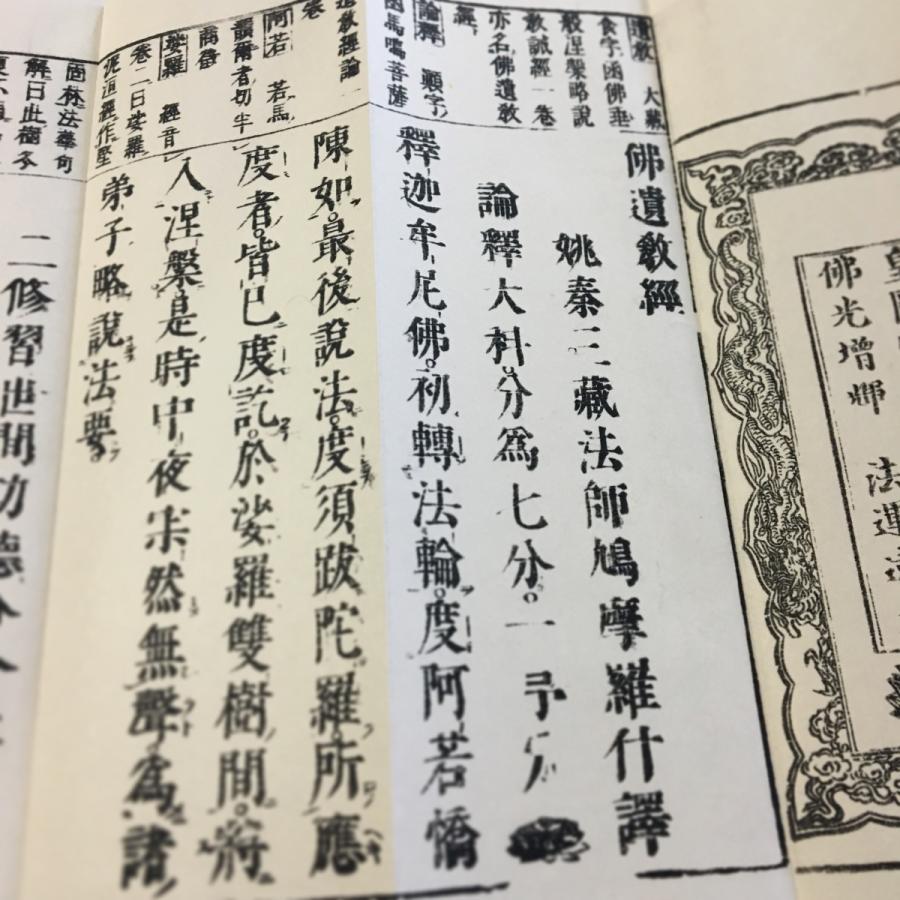 佛光增輝
法運
佛遺敎經
姚秦三藏法師鳩摩羅什譯
論釋大科。分爲七分。一
釋迦牟尼佛。初轉法輪。度阿若憍
陳如。最後說法。度須跋陀羅。所應
度者。皆已度訖。於娑羅雙樹間。將
入涅槃。是時中夜寂然無聲。爲諸
弟子略說法要。
二修習世間功德分
遺敎 大藏
食字函佛垂
般涅槃略說
敎誡經一卷
亦名佛遺敎
經
論釋 顯字
函馬鳴菩薩
遺敎經論一
卷
阿若 若馬
韻爾者切半
商音
娑羅 經音
卷二曰娑羅
泥洹經作堅
固林法華句
解曰此樹冬